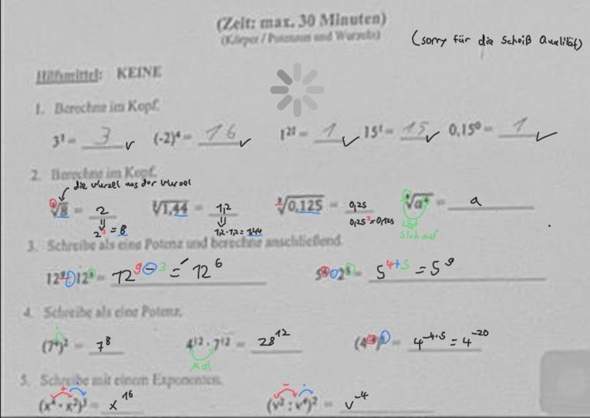 (Zeit: max. 30 Minuten)
(Körper / Potenzen und Wurzeln)
(sorry für die Scheiß Qualität)
Hilfsmittel: KEINE
1. Berechne im Kopf.
3¹ = 3 ✓ (-2)⁴ = 16 ✓ 1²³ = 1 ✓ 15¹ = 15 ✓ 0,15⁰ = 1 ✓
2. Berechne im Kopf.
die Wurzel aus der Wurzel
³√8 = 2 √1,44 = 1,2 ³√0,125 = 0,25 ⁴√a⁴ = a
2³ = 8 1,2·1,2 = 1,44 0,25³ = 0,125
3. Schreibe als eine Potenz und berechne anschließend.
12⁹ : 12³ = 12⁹⁻³ = 12⁶ 5⁴⁺⁵ = 5⁹
4. Schreibe als eine Potenz.
(7⁴)² = 7⁸ 4¹² · 7¹² = 28¹² = 4⁻⁴·⁵ = 4⁻²⁰
5. Schreibe mit einem Exponenten.
= x¹⁶ = v⁻⁴